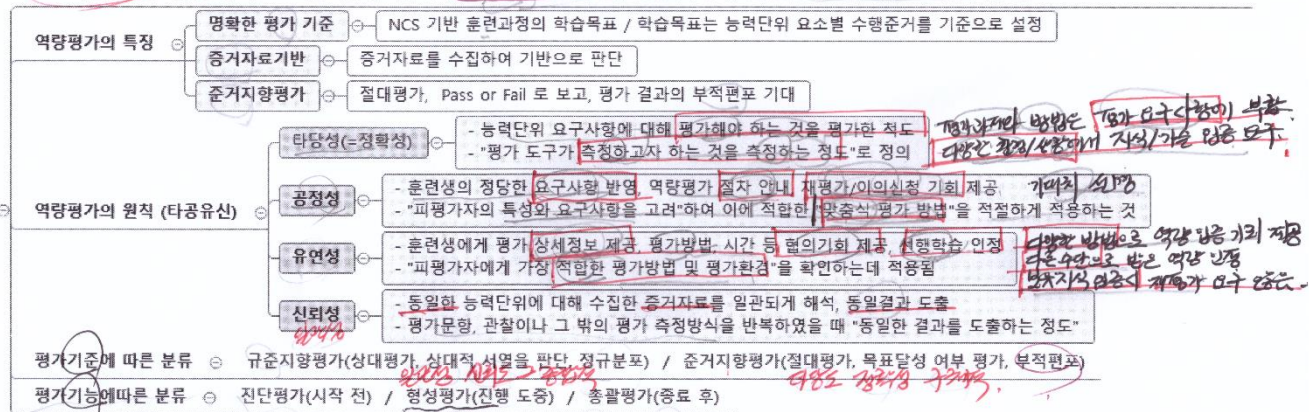 역량평가의 특징
명확한 평가 기준
NCS 기반 훈련과정의 학습목표 / 학습목표는 능력단위 요소별 수행준거를 기준으로 설정
증거자료기반
증거자료를 수집하여 기반으로 판단
준거지향평가
절대평가, Pass or Fail 로 보고, 평가 결과의 부적편포 기대
역량평가의 원칙 (타공유신)
타당성(=정확성)
- 능력단위 요구사항에 대해 평가해야 하는 것을 평가한 척도
- "평가 도구가 측정하고자 하는 것을 측정하는 정도"로 정의
평가 요구사항에 부합.
다양한 환경/상황에서 지식/기술 입증 요구.
공정성
- 훈련생의 정당한 요구사항 반영, 역량평가 절차 안내, 재평가/이의신청 기회 제공,
- "피평가자의 특성와 요구사항을 고려"하여 이에 적합한 "맞춤식 평가 방법"을 적절하게 적용하는 것
기대치 설명
유연성
- 훈련생에게 평가 상세정보 제공, 평가방법, 시간 등 협의기회 제공, 선행학습 인정
- "피평가자에게 가장 적합한 평가방법 및 평가환경"을 확인하는데 적용됨
다양한 방법으로 역량 입증 기회 제공
다른 수단으로 받은 역량 인정
재평가 요구 않음.
신뢰성
- 동일한 능력단위에 대해 수집한 증거자료를 일관되게 해석, 동일결과 도출
- 평가문항, 관찰이나 그 밖의 평가 측정방식을 반복하였을 때 "동일한 결과를 도출하는 정도"
평가기준에 따른 분류
규준지향평가(상대평가, 상대적 서열을 판단, 정규분포) / 준거지향평가(절대평가, 목표달성 여부 평가, 부적편포)
평가기능에따른 분류
진단평가(시작 전) / 형성평가(진행 도중) / 총괄평가(종료 후)